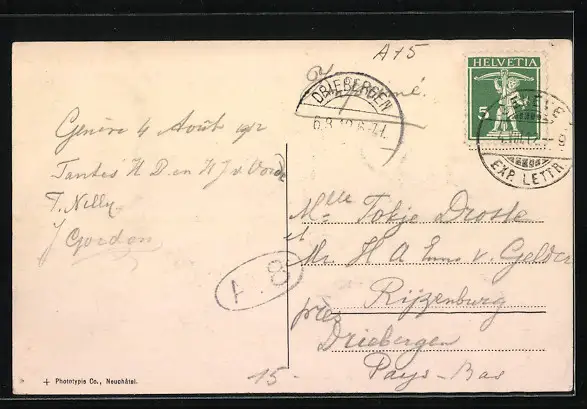 A+5
HELVETIA
5
DRIEBERGEN
6.8.12.6-7
GENÈVE
EXP. LETTR
Genève 4 Août 912
Tantes H D en H J v Voorde
T. Nelly
J Gordon
Mlle Tokje Droste
et
Mr H A Ems v. Gelder
Rijzenburg
près
Driebergen
Pays-Bas
A 83
15-
+ Phototypie Co., Neuchâtel.